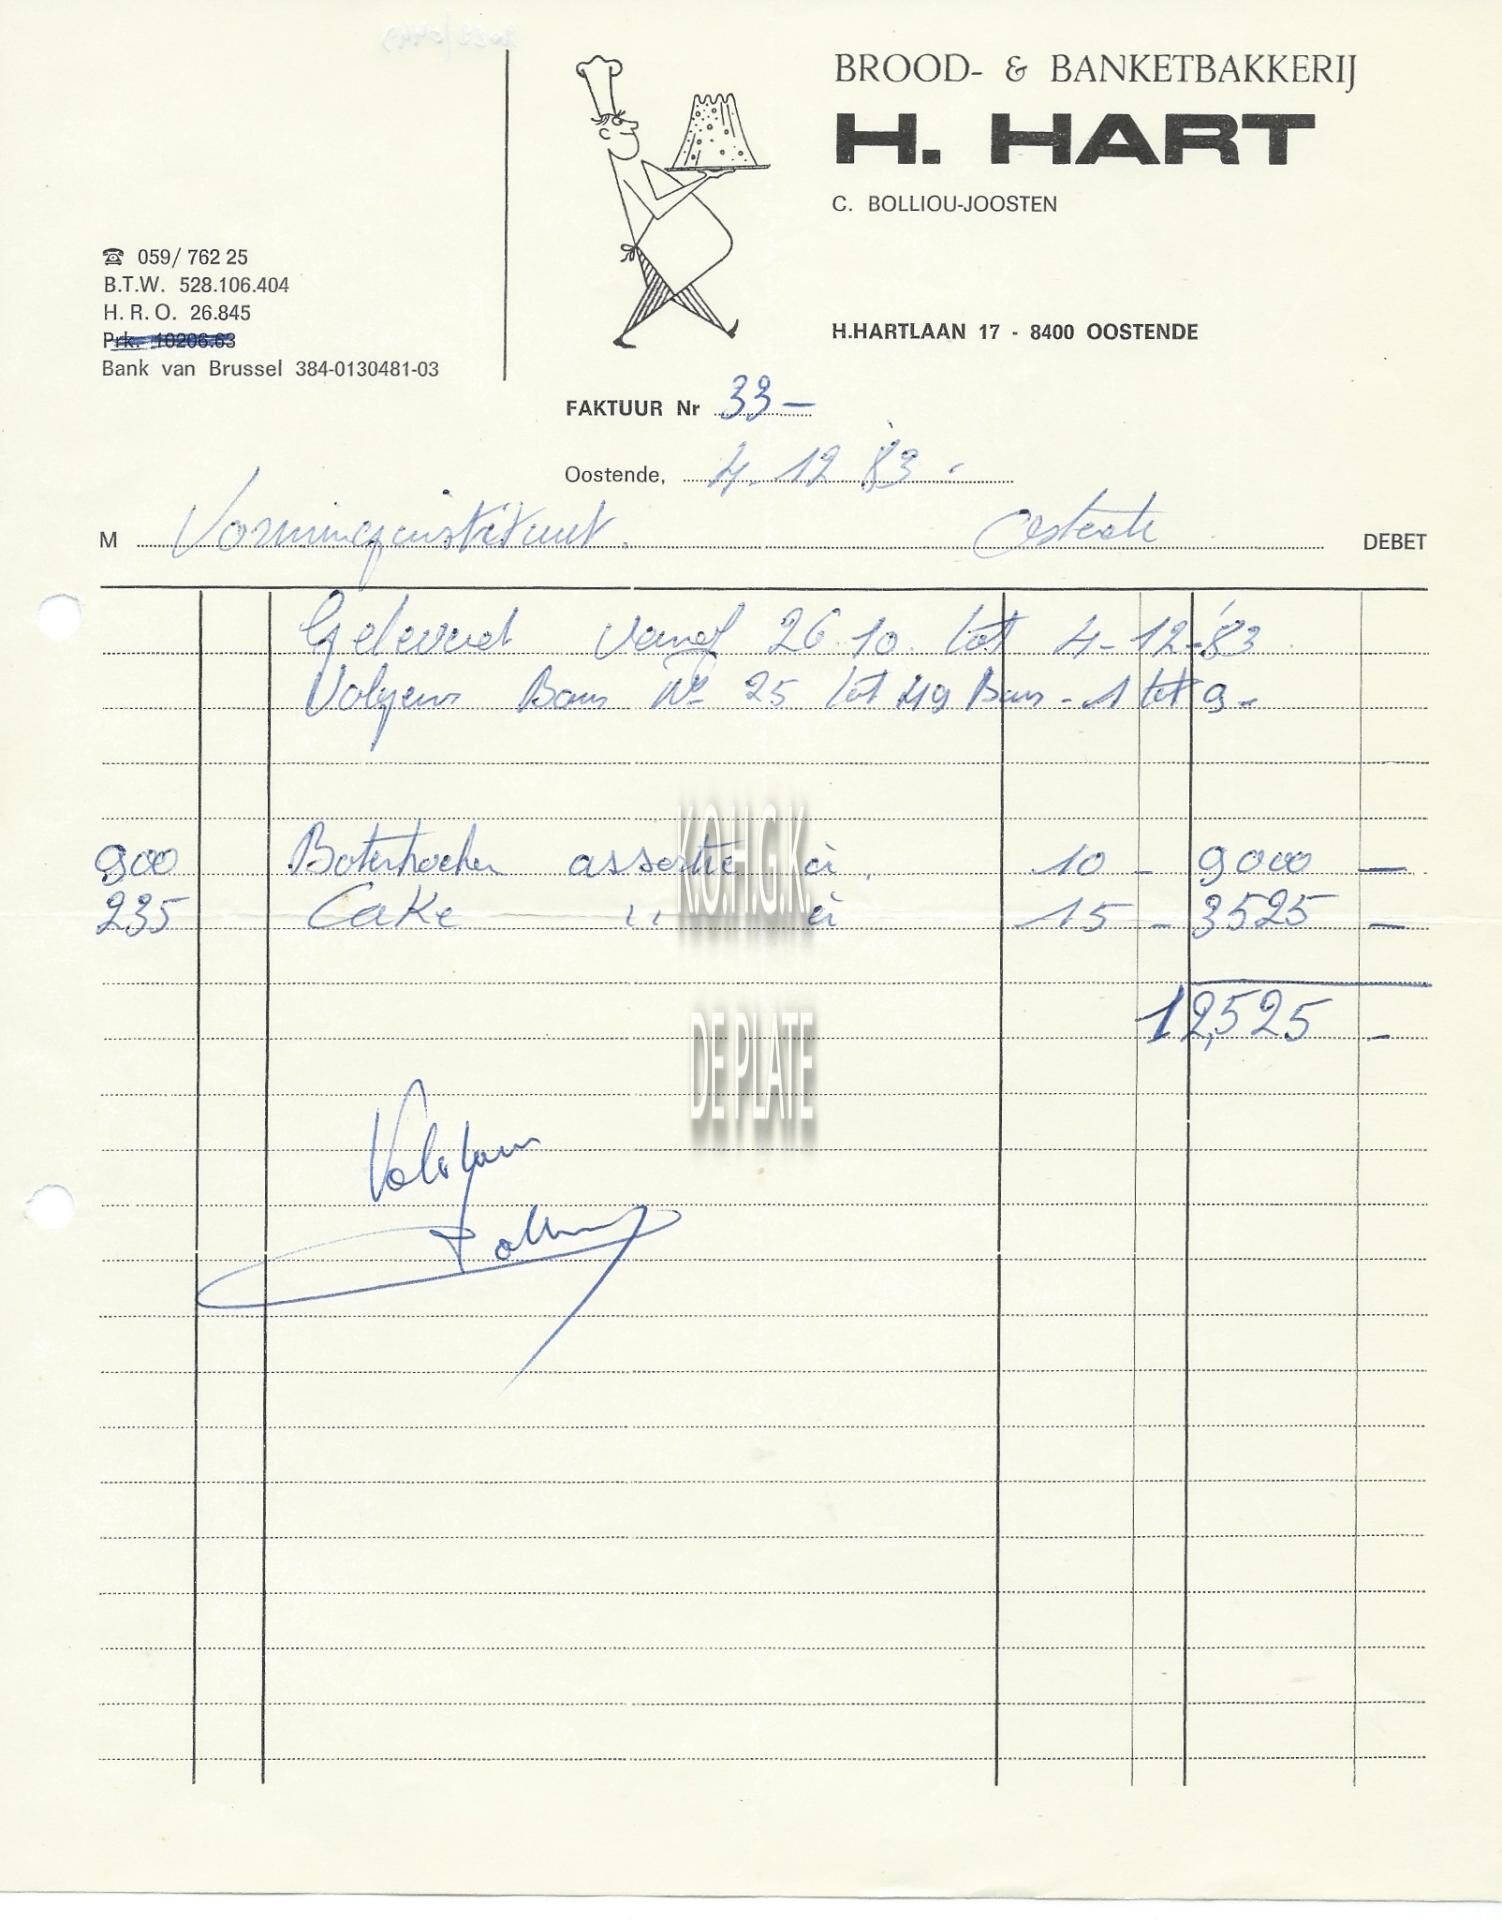 BROOD- & BANKETBAKKERIJ
H. HART
C. BOLLIOU-JOOSTEN
☎ 059/ 762 25
B.T.W. 528.106.404
H. R. O. 26.845
Prk. 10206.63
Bank van Brussel 384-0130481-03
H.HARTLAAN 17 - 8400 OOSTENDE
FAKTUUR Nr 33-
Oostende, 4.12 83.
M Vormingsinstituut. DEBET
Geleverd vanaf 26.10. tot 4-12-'83
Volgens Bons Nr 25 tot 49 Bons - 1 tot 9-
900 Boterkoeken assortie à 10 - 9000 -
235 Cake '' à 15 - 3525 -
12,525 -
K.O.H.G.K.
DE PLATE
Voldaan